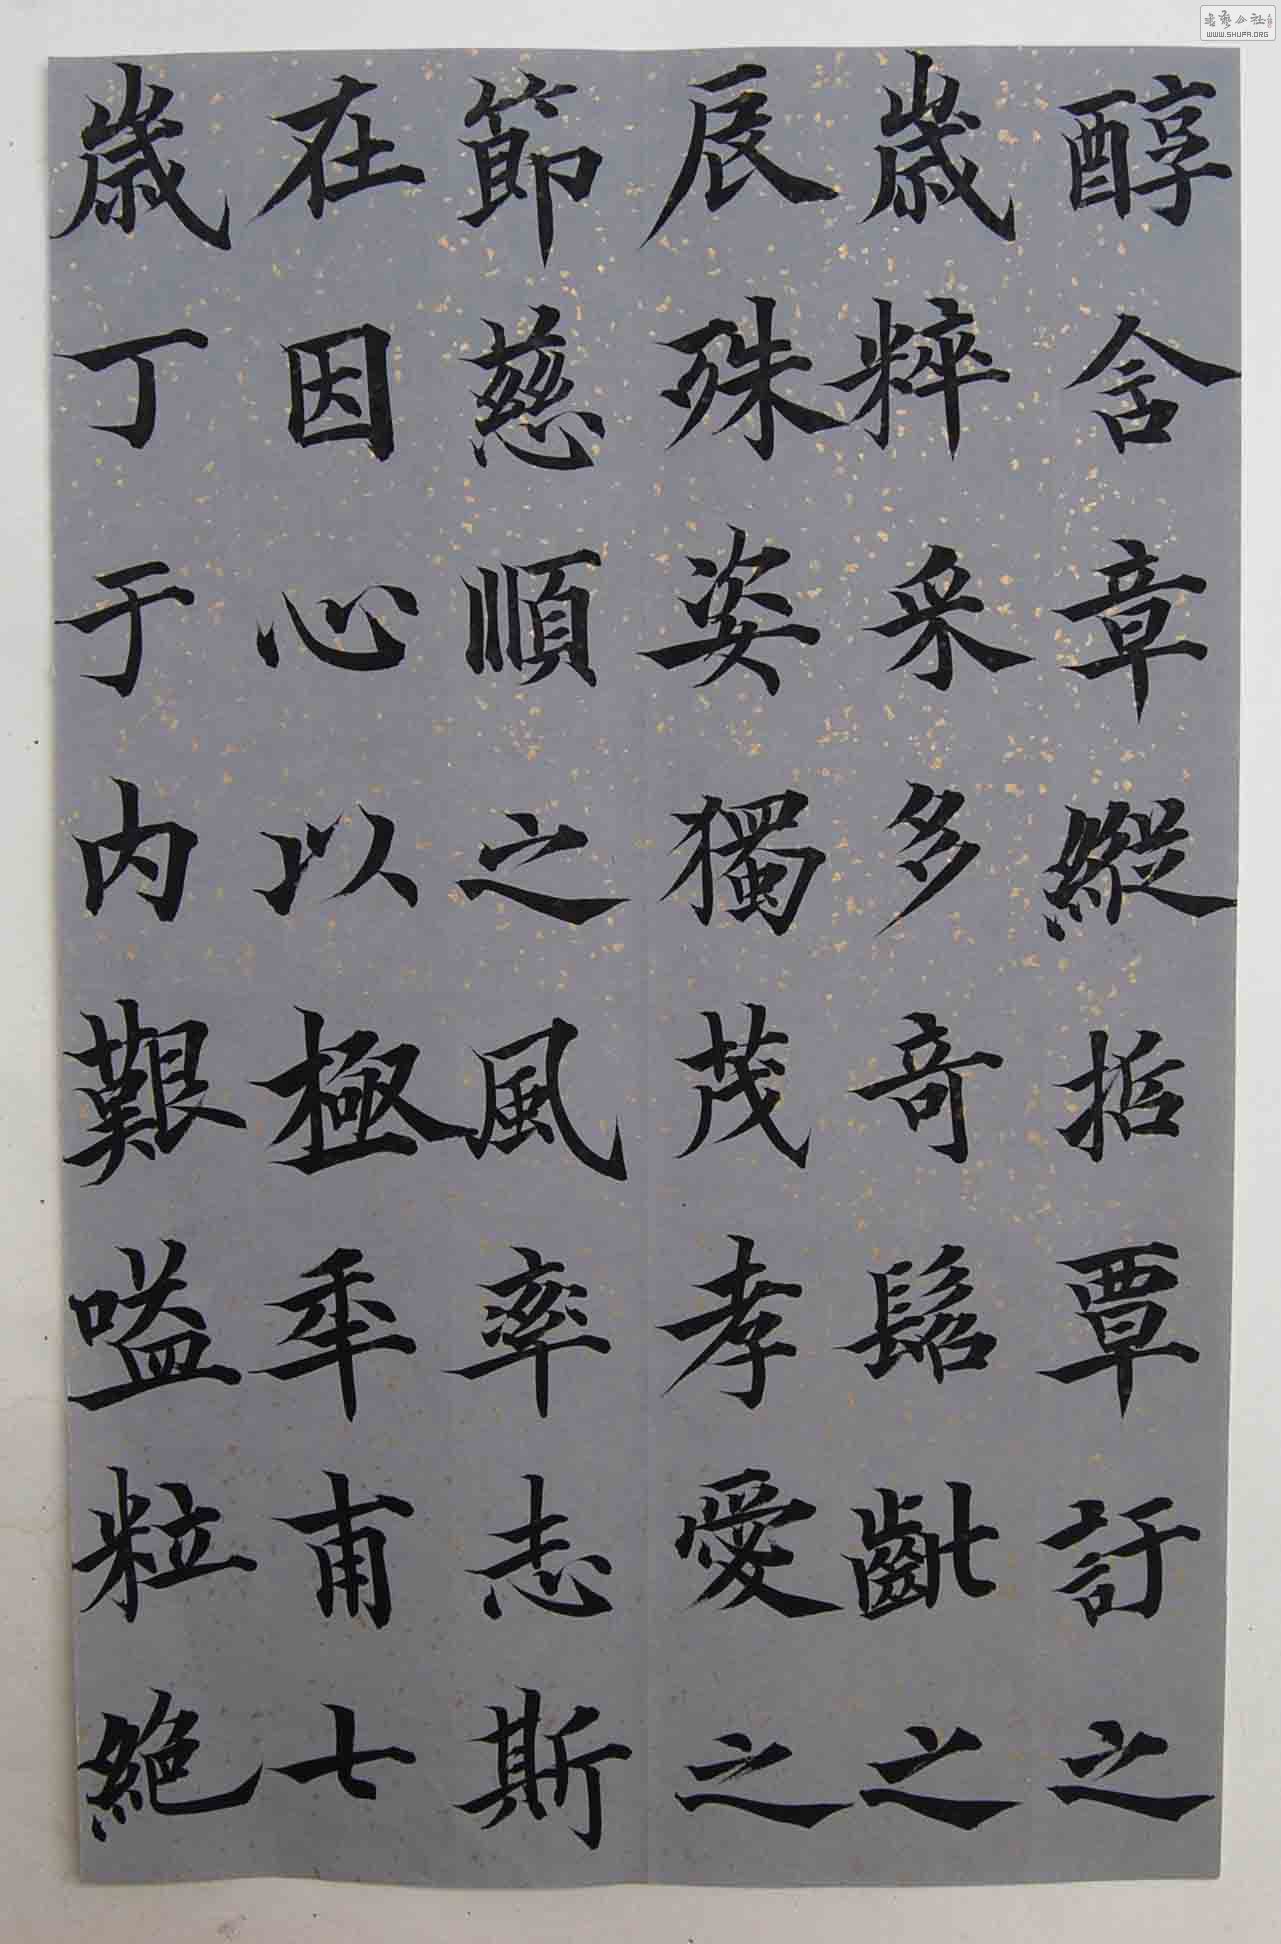 醇含章縱括覃訏之
歲粹采多奇髫齔之
辰殊姿獨茂孝愛之
節慈順之風率志斯
在因心以極年甫七
歲丁于内艱嗌粒絕
WWW.SHUFA.ORG